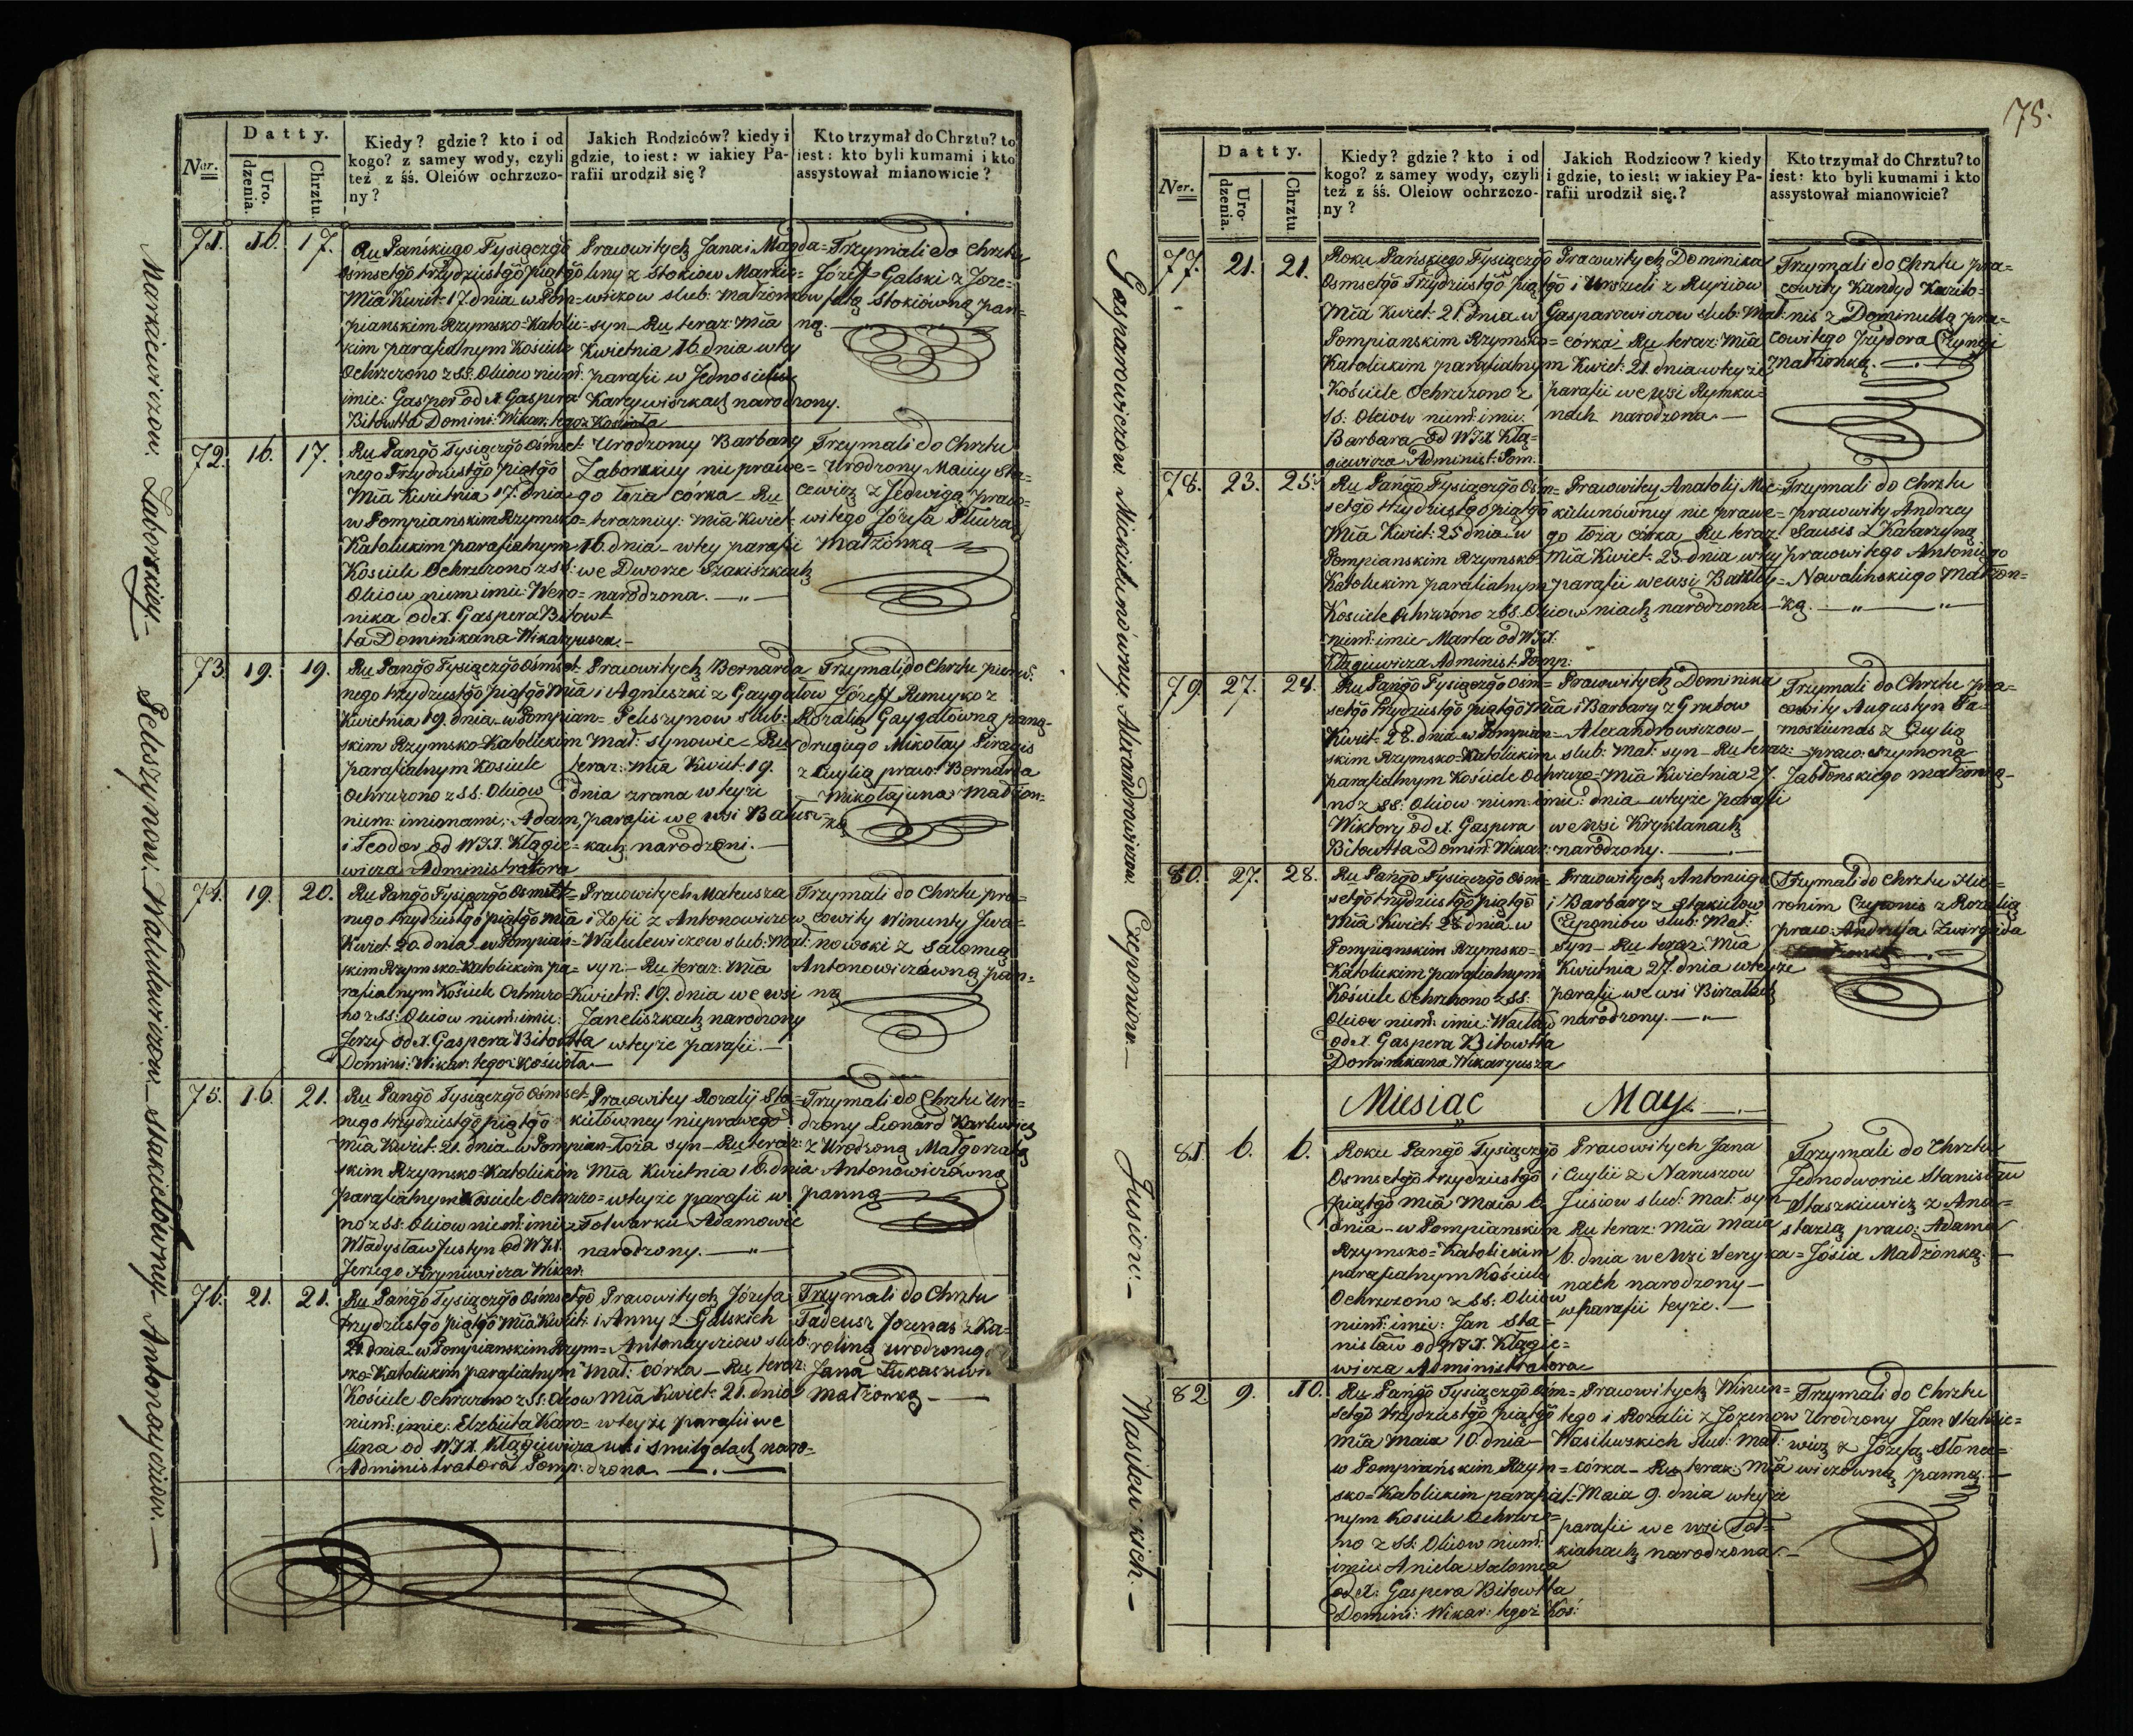 75.
Datty.
Ner.
Urodzenia.
Chrztu.
Kiedy? gdzie? kto i od
kogo? z samey wody, czyli
też z śś. Oleiów ochrzczo-
ny?
Jakich Rodziców? kiedy i
gdzie, to iest: w iakiey Pa-
rafii urodził się?
Kto trzymał do Chrztu? to
iest: kto byli kumami i kto
assystował mianowicie?
Markiewiczow.
71. 16. 17.
Ru Pańskiego Tysiączgo
Ośmsetgo trzydziestgo piątgo
Mia Kwiet: 17. dnia w Pom-
pianskim Rzymsko-Katolic-
kim parafialnym Kościele
Ochrzczono z SS: Oleiow niem:
imie: Gasper od X. Gaspera
Bitowtta Domini: Wikar: tegoż Kościoła
Pracowitych Jana i Magda-
leny z Stokiow Markie-
wiczow slub: Małżonkow
syn - Ru teraz: Mia
Kwietnia 16. dnia w tey
parafii w Jednosielu
Karczywiszkach narodzony.
Trzymali do Chrztu
Józef Galski z Joze-
fatą Stokiówną pan-
ną.
Zaborskiey.-
72. 16. 17.
Ru Pango Tysiączgo Ośmset-
nego Trzydziestgo piątgo
Mia Kwietnia 17. dnia
w Pompianskim Rzymsko-
Katolickim parafialnym
Kościele Ochrzczono z SS:
Oleiow niem imie: Wero-
nika od X. Gaspera Bitowt-
ta Dominikana Wikaryusza-
Urodzoney Barbary
Zaborskiey nie prawe-
go łoża córka - Ru
terazniey: Mia Kwiet:
16. dnia - w tey parafii
we Dworze Szakiszkach
narodzona.
Trzymali do Chrztu
Urodzony Maciey Sta-
cewicz z Jedwigą praco-
witego Józefa Plewra
Małżonką
Peleszynow.
73. 19. 19.
Ru Pango Tysiączgo Ośmset-
nego trzydziestgo piątgo Mia
Kwietnia 19. dnia - w Pompian-
skim Rzymsko-Katolickim
parafialnym Kościele
Ochrzczono z SS: Oleiow
niem: imionami: Adam,
i Teodor od WJX. Kłągie-
wicza Administratora
Pracowitych Bernarda
i Agnieszki z Gaygałow
Peleszynow slub:
Mał: synowie - Ru
teraz: Mia Kwiet: 19.
dnia zrana w teyże
parafii we wsi Bałusz-
kach narodzeni.
Trzymali do Chrztu pierw:
Józef Remeyko z
Rozalią Gaygałówną panną-
drugiego Mikołay Piragis
z Cecylią praco: Bernarda
Mikołajuna Małżon-
ką
Walułewiczow
74. 19. 20.
Ru Pango Tysiączgo Ośmset-
nego trzydziestgo piątgo Mia
Kwiet: 20. dnia - w Pompiań-
skim Rzymsko-Katolickim pa-
rafialnym Kościele Ochrzczo-
no z SS: Oleiow niem: imie:
Jerzy od X. Gaspera Bitowtta
Domini: Wikar: tegoż Kościoła-
Pracowitych Mateusza
i Zofii z Antonowiczow
Walulewiczow slub: Mał:
syn - Ru teraz: Mia
Kwietń: 19. dnia we wsi
Janeliszkach narodzony
w teyże parafii.-
Trzymali do Chrztu pra-
cowity Wincenty Jwa-
nowski z Salomeą
Antonowiczówną pan-
ną
Stakiełówney.
75. 16. 21.
Ru Pango Tysiączgo Ośmset-
nego trzydziestgo piątgo
Mia Kwiet: 21. dnia w Pompian-
skim Rzymsko-Katolickim
parafialnym Kościele Ochrzczo-
no z SS: Oleiow niem: imie:
Władysław Justyn od WJX.
Jerzego Hryniewicza Wikar:
Pracowitey Rozalij Sta-
kiełówney nieprawego
łoża syn - Ru teraz:
Mia Kwietnia 16. dnia
w teyże parafii w
Folwarku Adamowie
narodzony.
Trzymali do Chrztu Uro-
dzony Leonard Karlewicz
z Urodzoną Małgorzatą
Antonowiczówną
panną
Antonayciow.-
76. 21. 21.
Ru Pango Tysiączgo Ośmsetgo
trzydziestgo piątgo Mia Kwiet:
21. dnia w Pompianskim Rzym-
sko-Katolickim parafialnym
Kościele Ochrzczono z SS: Oleow
niem: imie: Elzbieta Karo-
lina od WJX. Kłągiewicza
Administratora Pomp:
Pracowitych Józefa
i Anny z Galskich
Antonayciow slub:
Mał: córka - Ru teraz:
Mia Kwiet: 21. dnia
w teyże parafii we
wsi Smilgelach naro-
dzona
Trzymali do Chrztu
Tadeusz Jozenas z Ka-
roliną urodzonego
Jana Łukaszewi
Małżonką -
Datty.
Ner.
Urodzenia.
Chrztu
Kiedy? gdzie? kto i od
kogo? z samey wody, czyli
też z śś. Oleiow ochrzczo-
ny?
Jakich Rodzicow? kiedy
i gdzie, to iest: w iakiey Pa-
rafii urodził się.?
Kto trzymał do Chrztu? to
iest: kto byli kumami i kto
assystował mianowicie?
Gasparowiczów
77. 21. 21.
Roku Pańskiego Tysiączgo
Osmsetgo Trzydziestgo pią-
tgo Mia Kwiet: 21. dnia w
Pompianskim Rzymsko-
Katolickim parafialnym
Kościele Ochrzczono z
SS: Oleiow niem: imie:
Barbara od WJX. Kłą-
giewicza Administ: Pom.
Pracowitych Dominika
i Urszuli z Rupiow
Gasparowiczow slub: Mał:
córka Ru teraz: Mia
Kwiet: 21. dnia w teyże
parafii we wsi Rymku-
nach narodzona -
Trzymali do Chrztu pra-
cowity Kandyd Kurilo-
nis z Dominellą pra-
cowitego Jzydora Czyngi
małżonką.
Mickielunówney.
78. 23. 25.
Ru Pango Tysiączgo Ośm-
setgo trzydziestgo piątgo
Mia Kwiet: 25 dnia w
Pompianskim Rzymsko-
Katolickim parafialnym
Kościele Ochrzczono z SS. Oleiow
niem: imie Marta od WJX.
Kłągiewicza Administ: Pomp:
Pracowitey Anatolij Mic-
kielunówney nie prawe-
go łoża córka - Ru teraz:
Mia Kwiet: 23. dnia w tey
parafii we wsi Bałtey-
niach narodzona
Trzymali do Chrztu
pracowity Andrzey
Sausis z Katarzyną
pracowitego Antoniego
Nowalinskiego Małżon-
ką.
Alexandrowiczow
79. 27. 28.
Ru Pango Tysiączgo Ośm-
setgo trzydziestgo piątgo Mia
Kwiet: 28. dnia w Pompian-
skim Rzymsko-Katolickim
parafialnym Kościele Ochrzczo-
no z SS: Oleiow niem: imie:
Wiktory od X. Gaspera
Bitowtta Domin: Wikar:
Pracowitych Dominika
i Barbary z Grubow
Alexandrowiczow
slub: Mał: syn - Ru teraz:
Mia Kwietnia 27.
dnia w teyże parafii
we wsi Kryklanach
narodzony.
Trzymali do Chrztu pra-
cowity Augustyn Ra-
moszkiunas z Cecylią
praco: Szymona
Jabłonskiego małżonką-
Czeponiow.-
80. 27. 28.
Ru Pango Tysiączgo Osm-
setgo trzydziestgo piątgo
Mia Kwiet: 28 dnia w
Pompianskim Rzymsko-
Katolickim parafialnym
Kościele Ochrzczono z SS:
Oleiow niem: imie: Wacław
od X. Gaspera Bitowtta
Dominikana Wikaryusza
Pracowitych Antoniego
i Barbary z Stakielow
Czeponiow slub: Mał:
syn - Ru teraz: Mia
Kwietnia 27. dnia w teyże
parafii we wsi Birzalach
narodzony.
Trzymali do Chrztu Hie-
ronim Czeponis z Rozalią
praco: Andrzeja Zwirgzda
Miesiąc May.
Jusiow.-
81. 6. 6.
Roku Pango Tysiączgo
Osmsetgo trzydziestgo
piątgo Mia Maia 6.
dnia - w Pompianskim
Rzymsko-Katolickim
parafialnym Kościele
Ochrzczono z SS: Oleiow
niem: imie: Jan Sta-
nisław od WJX. Kłągie-
wicza Administratora
Pracowitych Jana
i Cecylii z Naruszow
Jusiow slub: Mał: syn
Ru teraz: Mia Maia
6. dnia we wsi Sereyka-
nach narodzony -
w parafii teyże.-
Trzymali do Chrztu
Jednodworiec Stanisław
Staszkiewicz z Ana-
stazią praco: Adama
Jósia Małżonką.
Wasilewskich.-
82 9. 10.
Ru Pango Tysiączgo Ośm-
setgo trzydziestgo piątgo
Mia Maia 10. dnia -
w Pompiańskim Rzym-
sko-Katolickim parafial-
nym Kościele Ochrzczo-
no z SS: Oleiow niem:
imie Aniela Salomea
od X. Gaspera Bitowtta
Domini: Wikar: tegoż Koś:
Pracowitych Wincen-
tego i Rozalii z Jozenow
Wasilewskich slub: Mał:
córka - Ru teraz: Mia
Maia 9. dnia w teyże
parafii we wsi Toł-
kianach narodzona.-
Trzymali do Chrztu
Urodzony Jan Stankie-
wicz z Józefą Stona-
wiczówną panną.